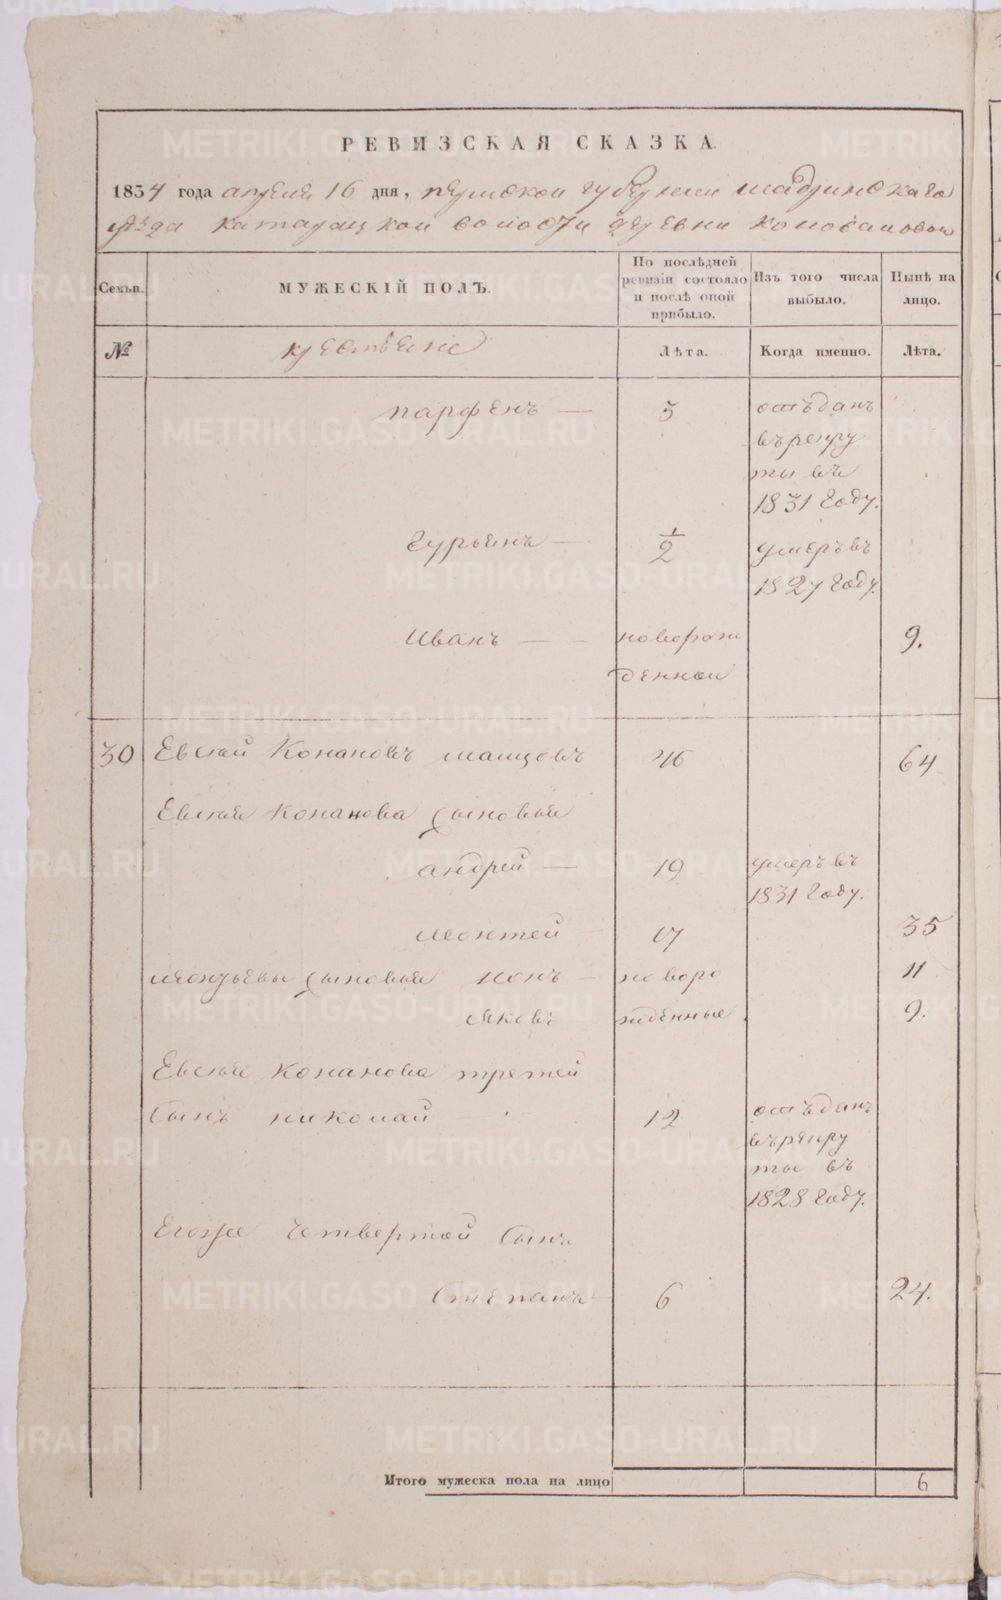 РЕВИЗСКАЯ СКАЗКА
1834 года апреля 16 дня, пермской губернии шадринскаго
уѣзда катарацкой волости деревни коноваловой
Семьи.
МУЖЕСКІЙ ПОЛЪ.
По послѣдней ревизіи состояло и послѣ оной прибыло.
Изъ того числа выбыло.
Нынѣ на лицо.
№
крестьяне
Лѣта.
Когда именно.
Лѣта.
парфенъ — 5 отъданъ
въ рекру
ты въ
1831 году.
Гурьянъ — 1/2 умеръ въ
1827 году.
Иванъ — — новорож 9.
денной
30 Евсѣй Конановъ 46 64
Евсѣя Конанова сыновья
андрей — 19 умеръ въ
1831 году.
леонтей 17 35
леонтьевы сыновья — новоро 11
яковъ жденные. 9.
Евсѣя Конанова третей
сынъ николай — 12 отъданъ
въ рекру
ты въ
1828 году.
Егоже четвертой сынъ
степанъ 6 24.
Итого мужеска пола на лицо 6
METRIKI.GASO-URAL.RU